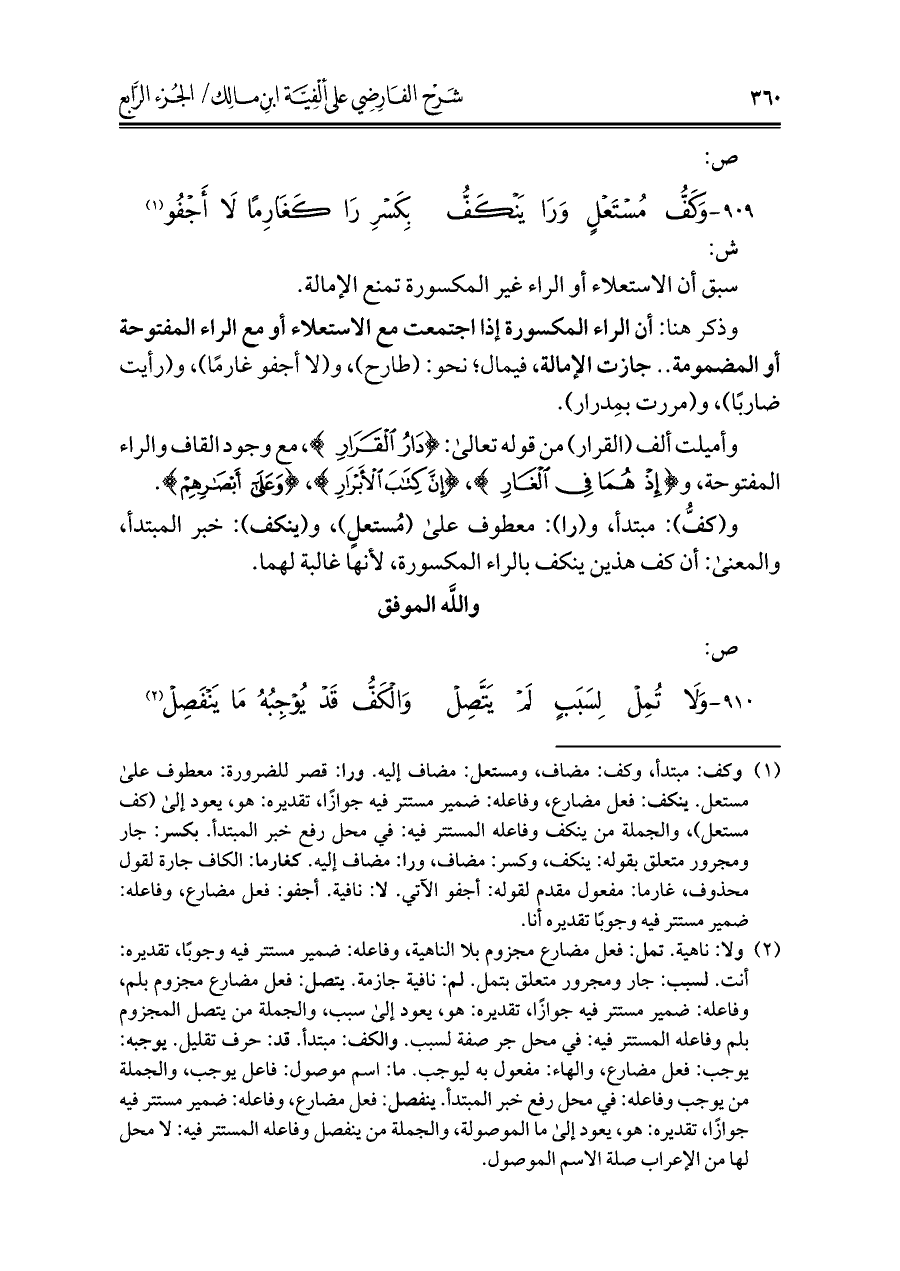 ٣٦٠
شَرْح الفَارِضِي عَلى أَلْفِيَّة ابن مالك / الجُزء الرَّابع
ص:
٩٠٩-وَكَفُّ مُسْتَعْلٍ وَرَا يَنْكَفُّ بِكَسْرِ رَا كَغَارِمًا لَا أَجْفُو(١)
ش:
سبق أن الاستعلاء أو الراء غير المكسورة تمنع الإمالة.
وذكر هنا: أن الراء المكسورة إذا اجتمعت مع الاستعلاء أو مع الراء المفتوحة
أو المضمومة.. جازت الإمالة، فيمال؛ نحو: (طارح)، و(لا أجفو غارمًا)، و(رأيت
ضاربًا)، و(مررت بمِدرار).
وأميلت ألف (القرار) من قوله تعالىٰ: ﴿دَارُ ٱلْقَرَارِ﴾، مع وجود القاف والراء
المفتوحة، و﴿إِذْ هُمَا فِى ٱلْغَارِ﴾، ﴿إِنَّ كِتَٰبَ ٱلْأَبْرَارِ﴾، ﴿وَعَلَىٰٓ أَبْصَٰرِهِمْ﴾.
و(كفُّ): مبتدأ، و(را): معطوف علىٰ (مُستعلٍ)، و(ينكف): خبر المبتدأ،
والمعنىٰ: أن كف هذين ينكف بالراء المكسورة، لأنها غالبة لهما.
واللَّه الموفق
ص:
٩١٠-وَلَا تُمِلْ لِسَبَبٍ لَمْ يَتَّصِلْ وَالْكَفُّ قَدْ يُوْجِبُهُ مَا يَنْفَصِلْ(٢)
(١) وكف: مبتدأ، وكف: مضاف، ومستعل: مضاف إليه. ورا: قصر للضرورة: معطوف علىٰ
مستعل. ينكف: فعل مضارع، وفاعله: ضمير مستتر فيه جوازًا، تقديره: هو، يعود إلىٰ (كف
مستعل)، والجملة من ينكف وفاعله المستتر فيه: في محل رفع خبر المبتدأ. بكسر: جار
ومجرور متعلق بقوله: ينكف، وكسر: مضاف، ورا: مضاف إليه. كغارما: الكاف جارة لقول
محذوف، غارما: مفعول مقدم لقوله: أجفو الآتي. لا: نافية. أجفو: فعل مضارع، وفاعله:
ضمير مستتر فيه وجوبًا تقديره أنا.
(٢) ولا: ناهية. تمل: فعل مضارع مجزوم بلا الناهية، وفاعله: ضمير مستتر فيه وجوبًا، تقديره:
أنت. لسبب: جار ومجرور متعلق بتمل. لم: نافية جازمة. يتصل: فعل مضارع مجزوم بلم،
وفاعله: ضمير مستتر فيه جوازًا، تقديره: هو، يعود إلىٰ سبب، والجملة من يتصل المجزوم
بلم وفاعله المستتر فيه: في محل جر صفة لسبب. والكف: مبتدأ. قد: حرف تقليل. يوجبه:
يوجب: فعل مضارع، والهاء: مفعول به ليوجب. ما: اسم موصول: فاعل يوجب، والجملة
من يوجب وفاعله: في محل رفع خبر المبتدأ. ينفصل: فعل مضارع، وفاعله: ضمير مستتر فيه
جوازًا، تقديره: هو، يعود إلىٰ ما الموصولة، والجملة من ينفصل وفاعله المستتر فيه: لا محل
لها من الإعراب صلة الاسم الموصول.